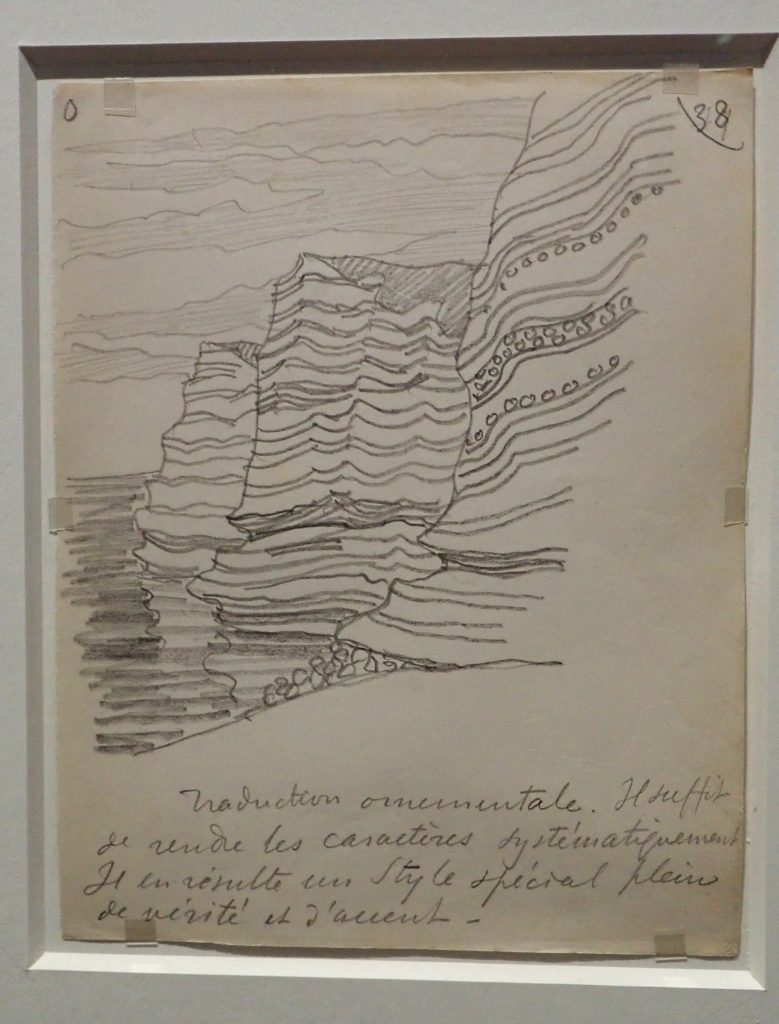 0
38
Traduction ornementale. Il suffit
de rendre les caractères systématiquement
Il en résulte un Style spécial plein
de vérité et d'accent -